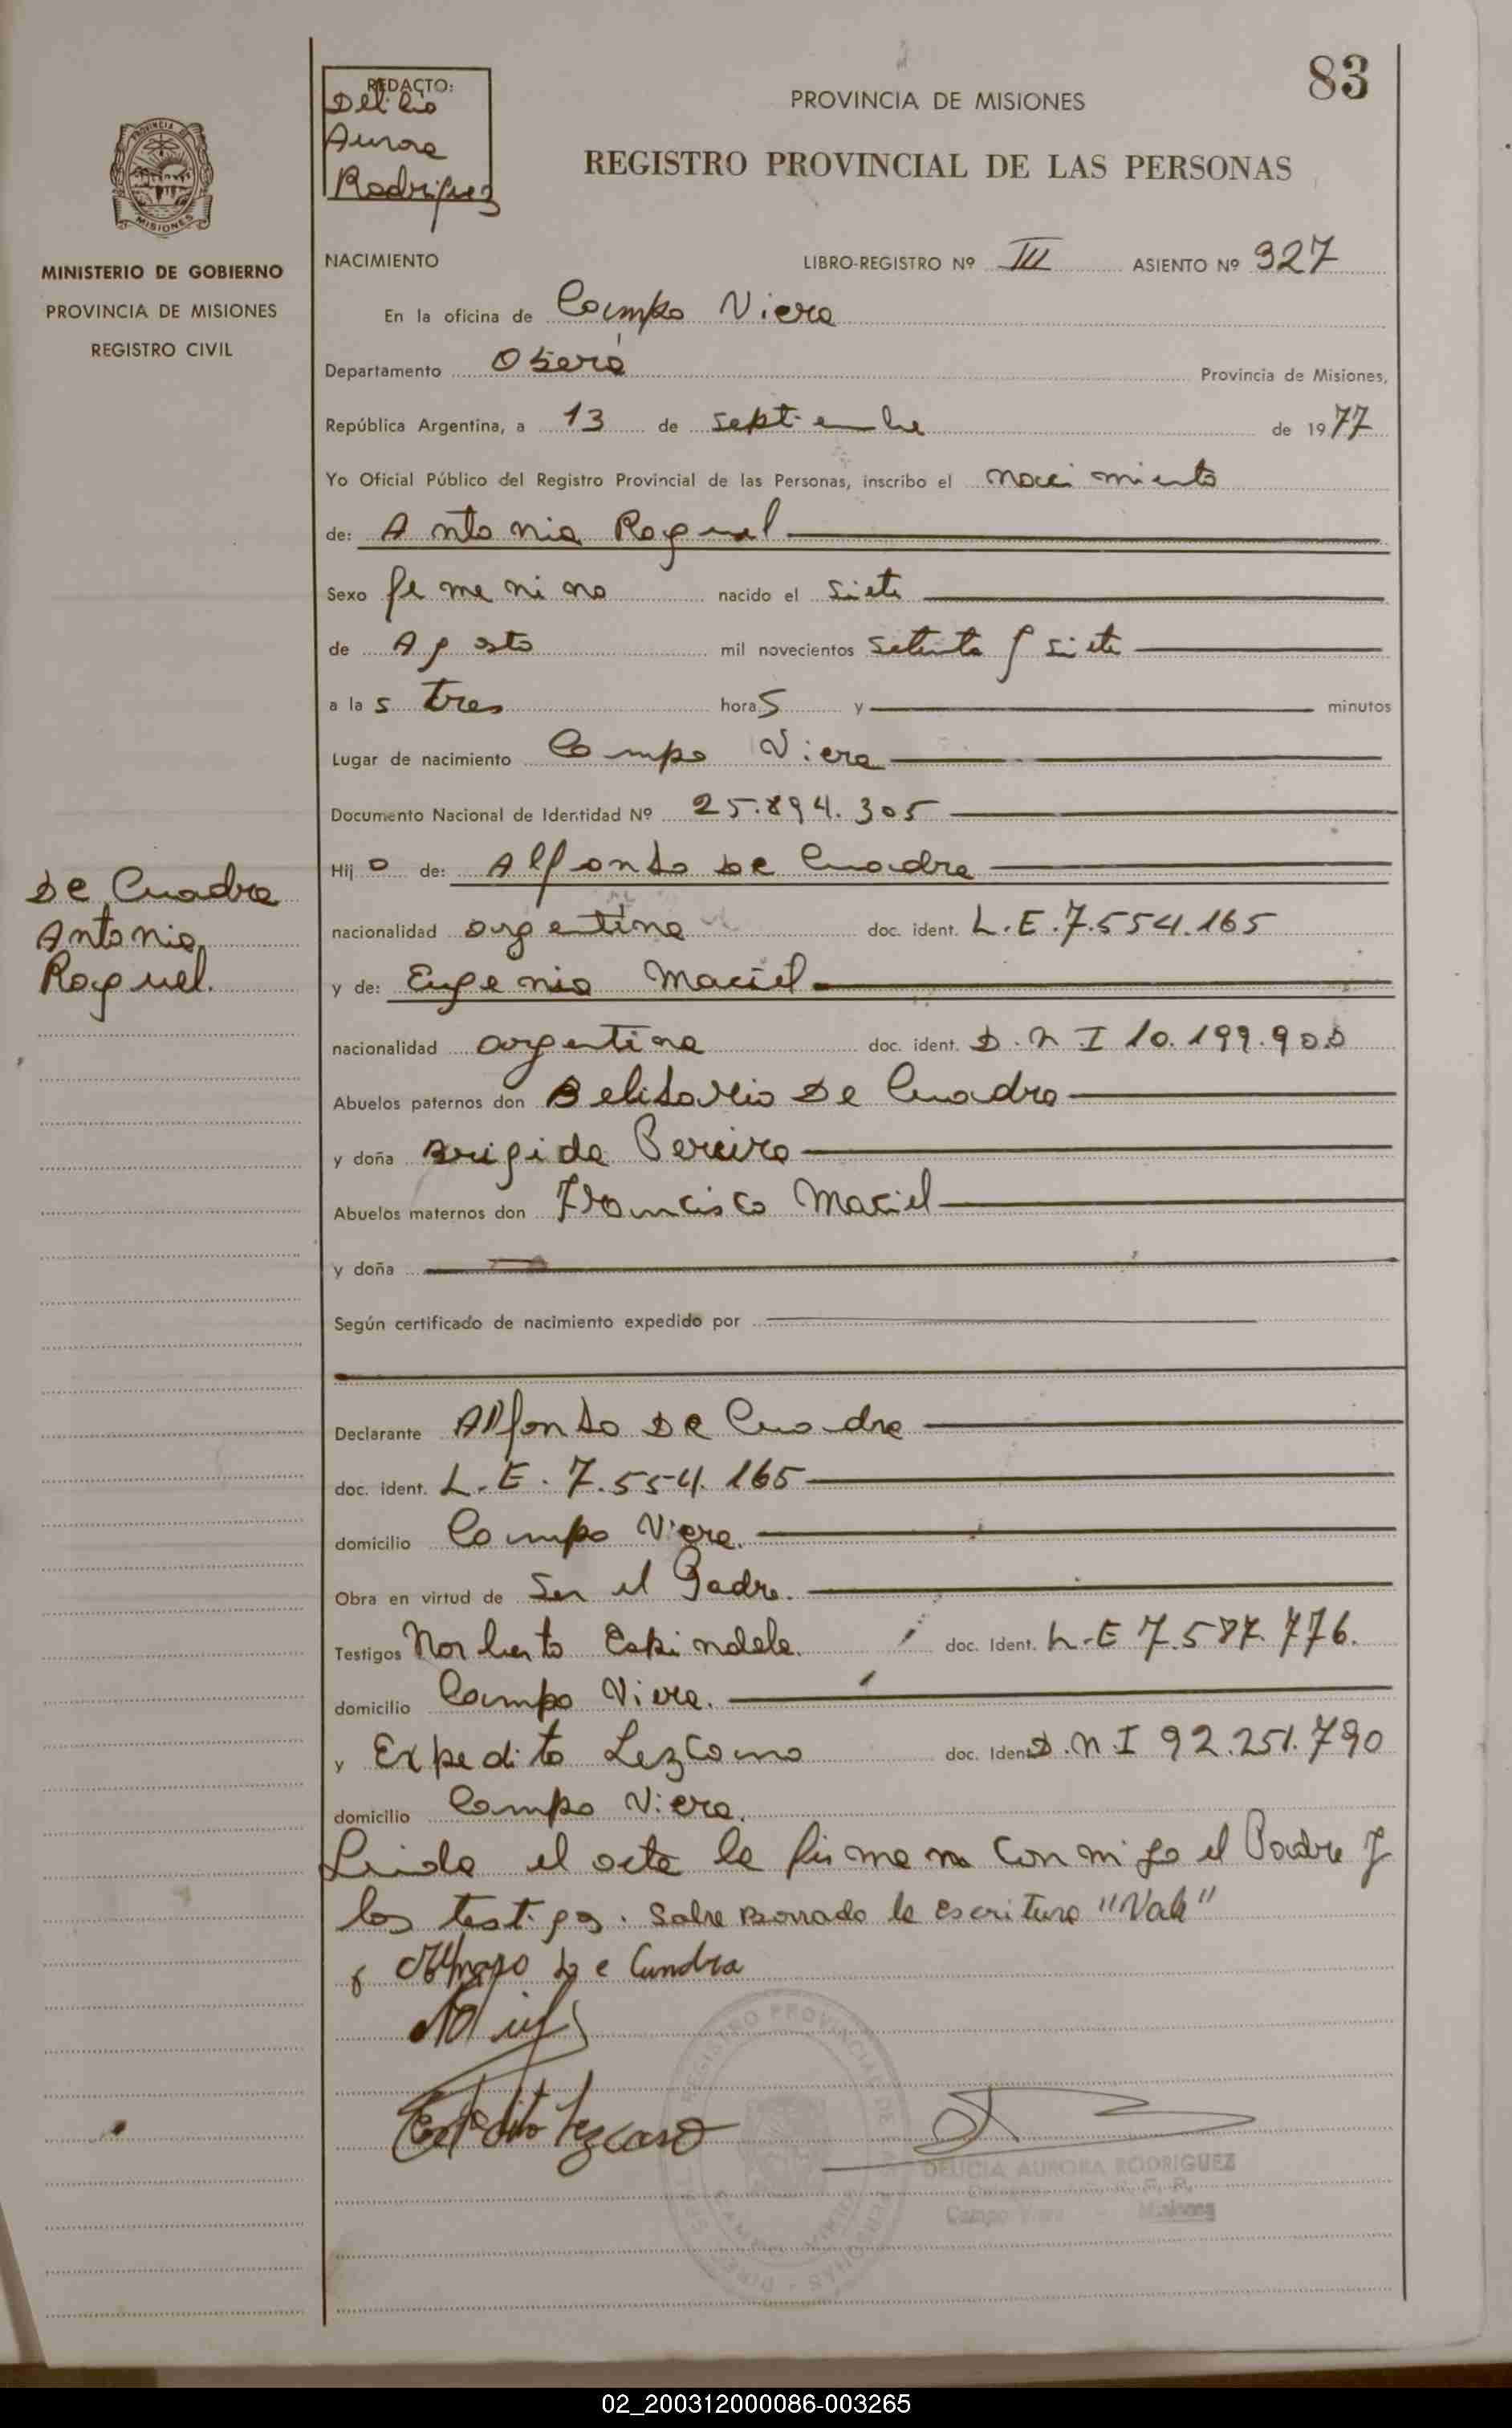 83
REDACTO:
Aurora
Rodriguez
PROVINCIA DE MISIONES
REGISTRO PROVINCIAL DE LAS PERSONAS
PROVINCIA DE
MISIONES
MINISTERIO DE GOBIERNO
PROVINCIA DE MISIONES
REGISTRO CIVIL
NACIMIENTO LIBRO-REGISTRO Nº III ASIENTO Nº 327
En la oficina de Campo Viera
Departamento Oberá Provincia de Misiones,
República Argentina, a 13 de septiembre de 1977
Yo Oficial Público del Registro Provincial de las Personas, inscribo el nacimiento
de: Antonia Raquel
Sexo femenino nacido el siete
de Agosto mil novecientos setenta y siete
a las tres horas y minutos
Lugar de nacimiento Campo Viera
Documento Nacional de Identidad Nº 25.894.305
Hijo de: Alfonso De Cuadra
nacionalidad argentina doc. ident. L.E.7.554.165
y de: Eugenia Maciel
nacionalidad argentina doc. ident. D.N.I 10.199.900
Abuelos paternos don Belisario De Cuadra
y doña Brigida Pereira
Abuelos maternos don Francisco Maciel
y doña
Según certificado de nacimiento expedido por
De Cuadra
Antonia
Raquel.
Declarante Alfonso De Cuadra
doc. ident. L.E. 7.554.165
domicilio Campo Viera.
Obra en virtud de Ser el Padre.
Testigos Norberto Espindola. doc. Ident. L.E 7.587.776.
domicilio Campo Viera.
y Expedito Lezcano doc. Ident D.N.I 92.251.790
domicilio Campo Viera.
Leida el acta la firman conmigo el Padre y
los testigos. Sobre Borrado la escritura "Vale"
De Cuadra
Expedito Lezcano
REGISTRO PROVINCIAL DE LAS PERSONAS
CAMPO VIERA
DELICIA AURORA RODRIGUEZ
Campo Viera - Misiones
02_200312000086-003265